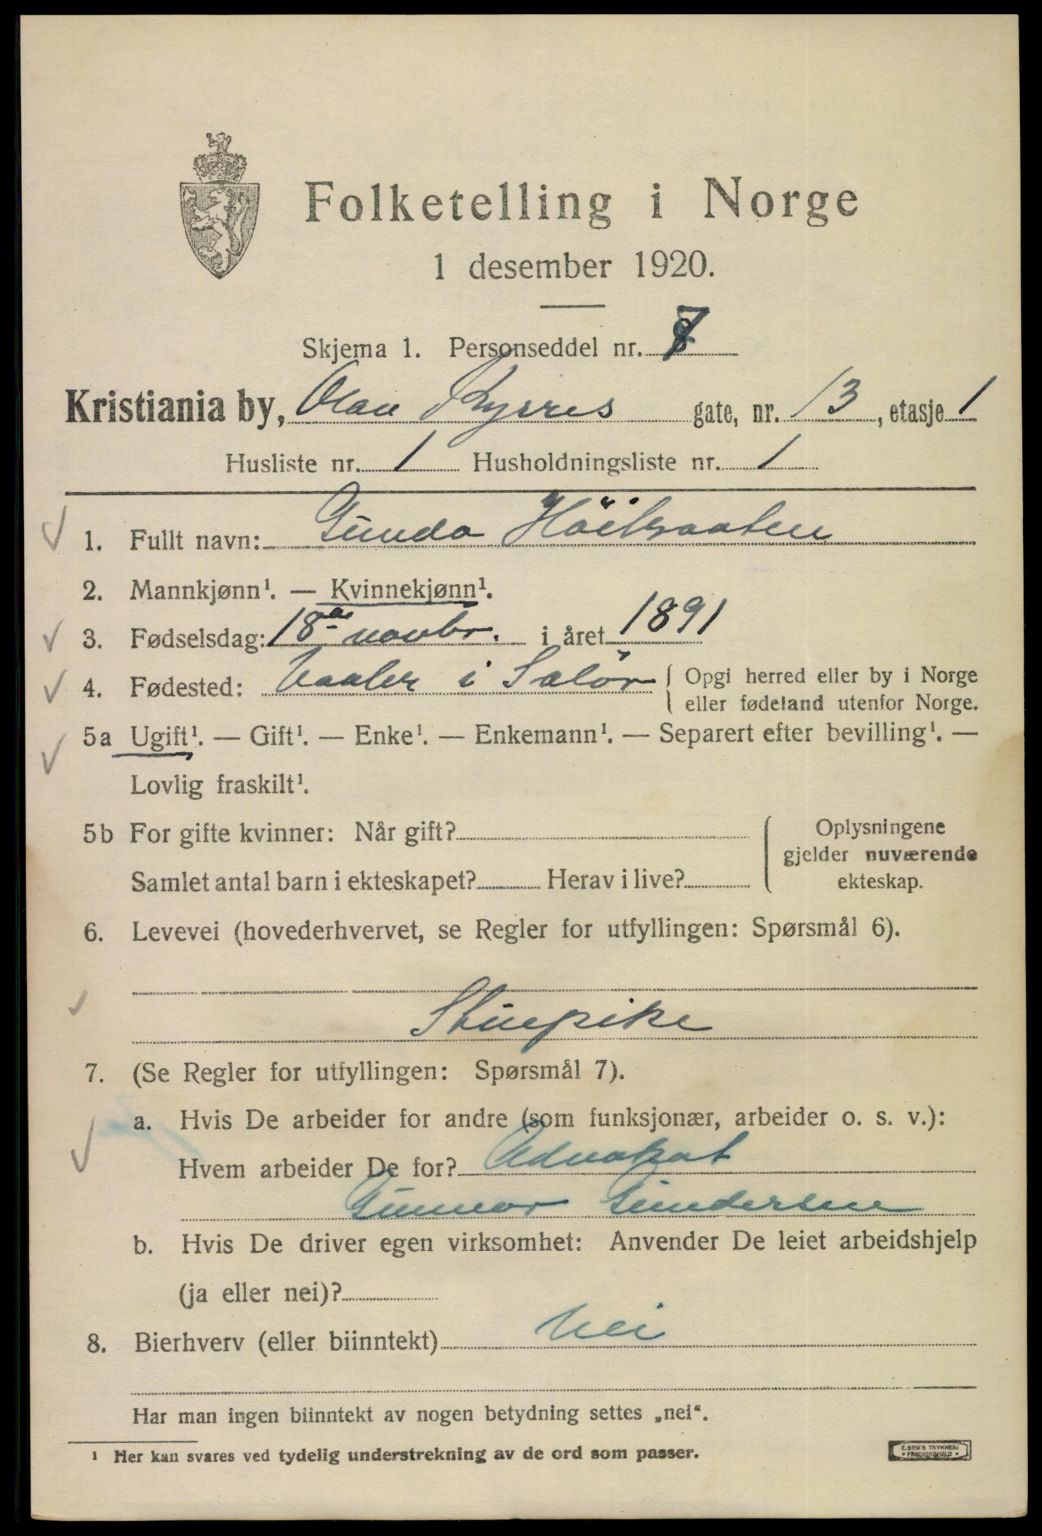 Folketelling i Norge
1 desember 1920.
Skjema 1. Personseddel nr. 7
Kristiania by, Olav Kyrres gate, nr. 13, etasje 1
Husliste nr. 1 Husholdningsliste nr. 1
1. Fullt navn: Gunda Höibraaten
2. Mannkjønn¹. — Kvinnekjønn¹.
3. Fødselsdag: 18de novbr. i året 1891
4. Fødested: Vaaler i Solör { Opgi herred eller by i Norge
eller fødeland utenfor Norge.
5a Ugift¹. — Gift¹. — Enke¹. — Enkemann¹. — Separert efter bevilling¹. —
Lovlig fraskilt¹.
5b For gifte kvinner: Når gift?
Samlet antal barn i ekteskapet? Herav i live?
Oplysningene
gjelder nuværende
ekteskap.
6. Levevei (hovederhvervet, se Regler for utfyllingen: Spørsmål 6).
Stuepike
7. (Se Regler for utfyllingen: Spørsmål 7).
a. Hvis De arbeider for andre (som funksjonær, arbeider o. s. v.):
Hvem arbeider De for? Advokat
Gunnar Gundersen
b. Hvis De driver egen virksomhet: Anvender De leiet arbeidshjelp
(ja eller nei)?
8. Bierhverv (eller biinntekt) Nei
Har man ingen biinntekt av nogen betydning settes „nei“.
¹ Her kan svares ved tydelig understrekning av de ord som passer.
E. SEM'S TRYKKERI
FREDRIKSHALD